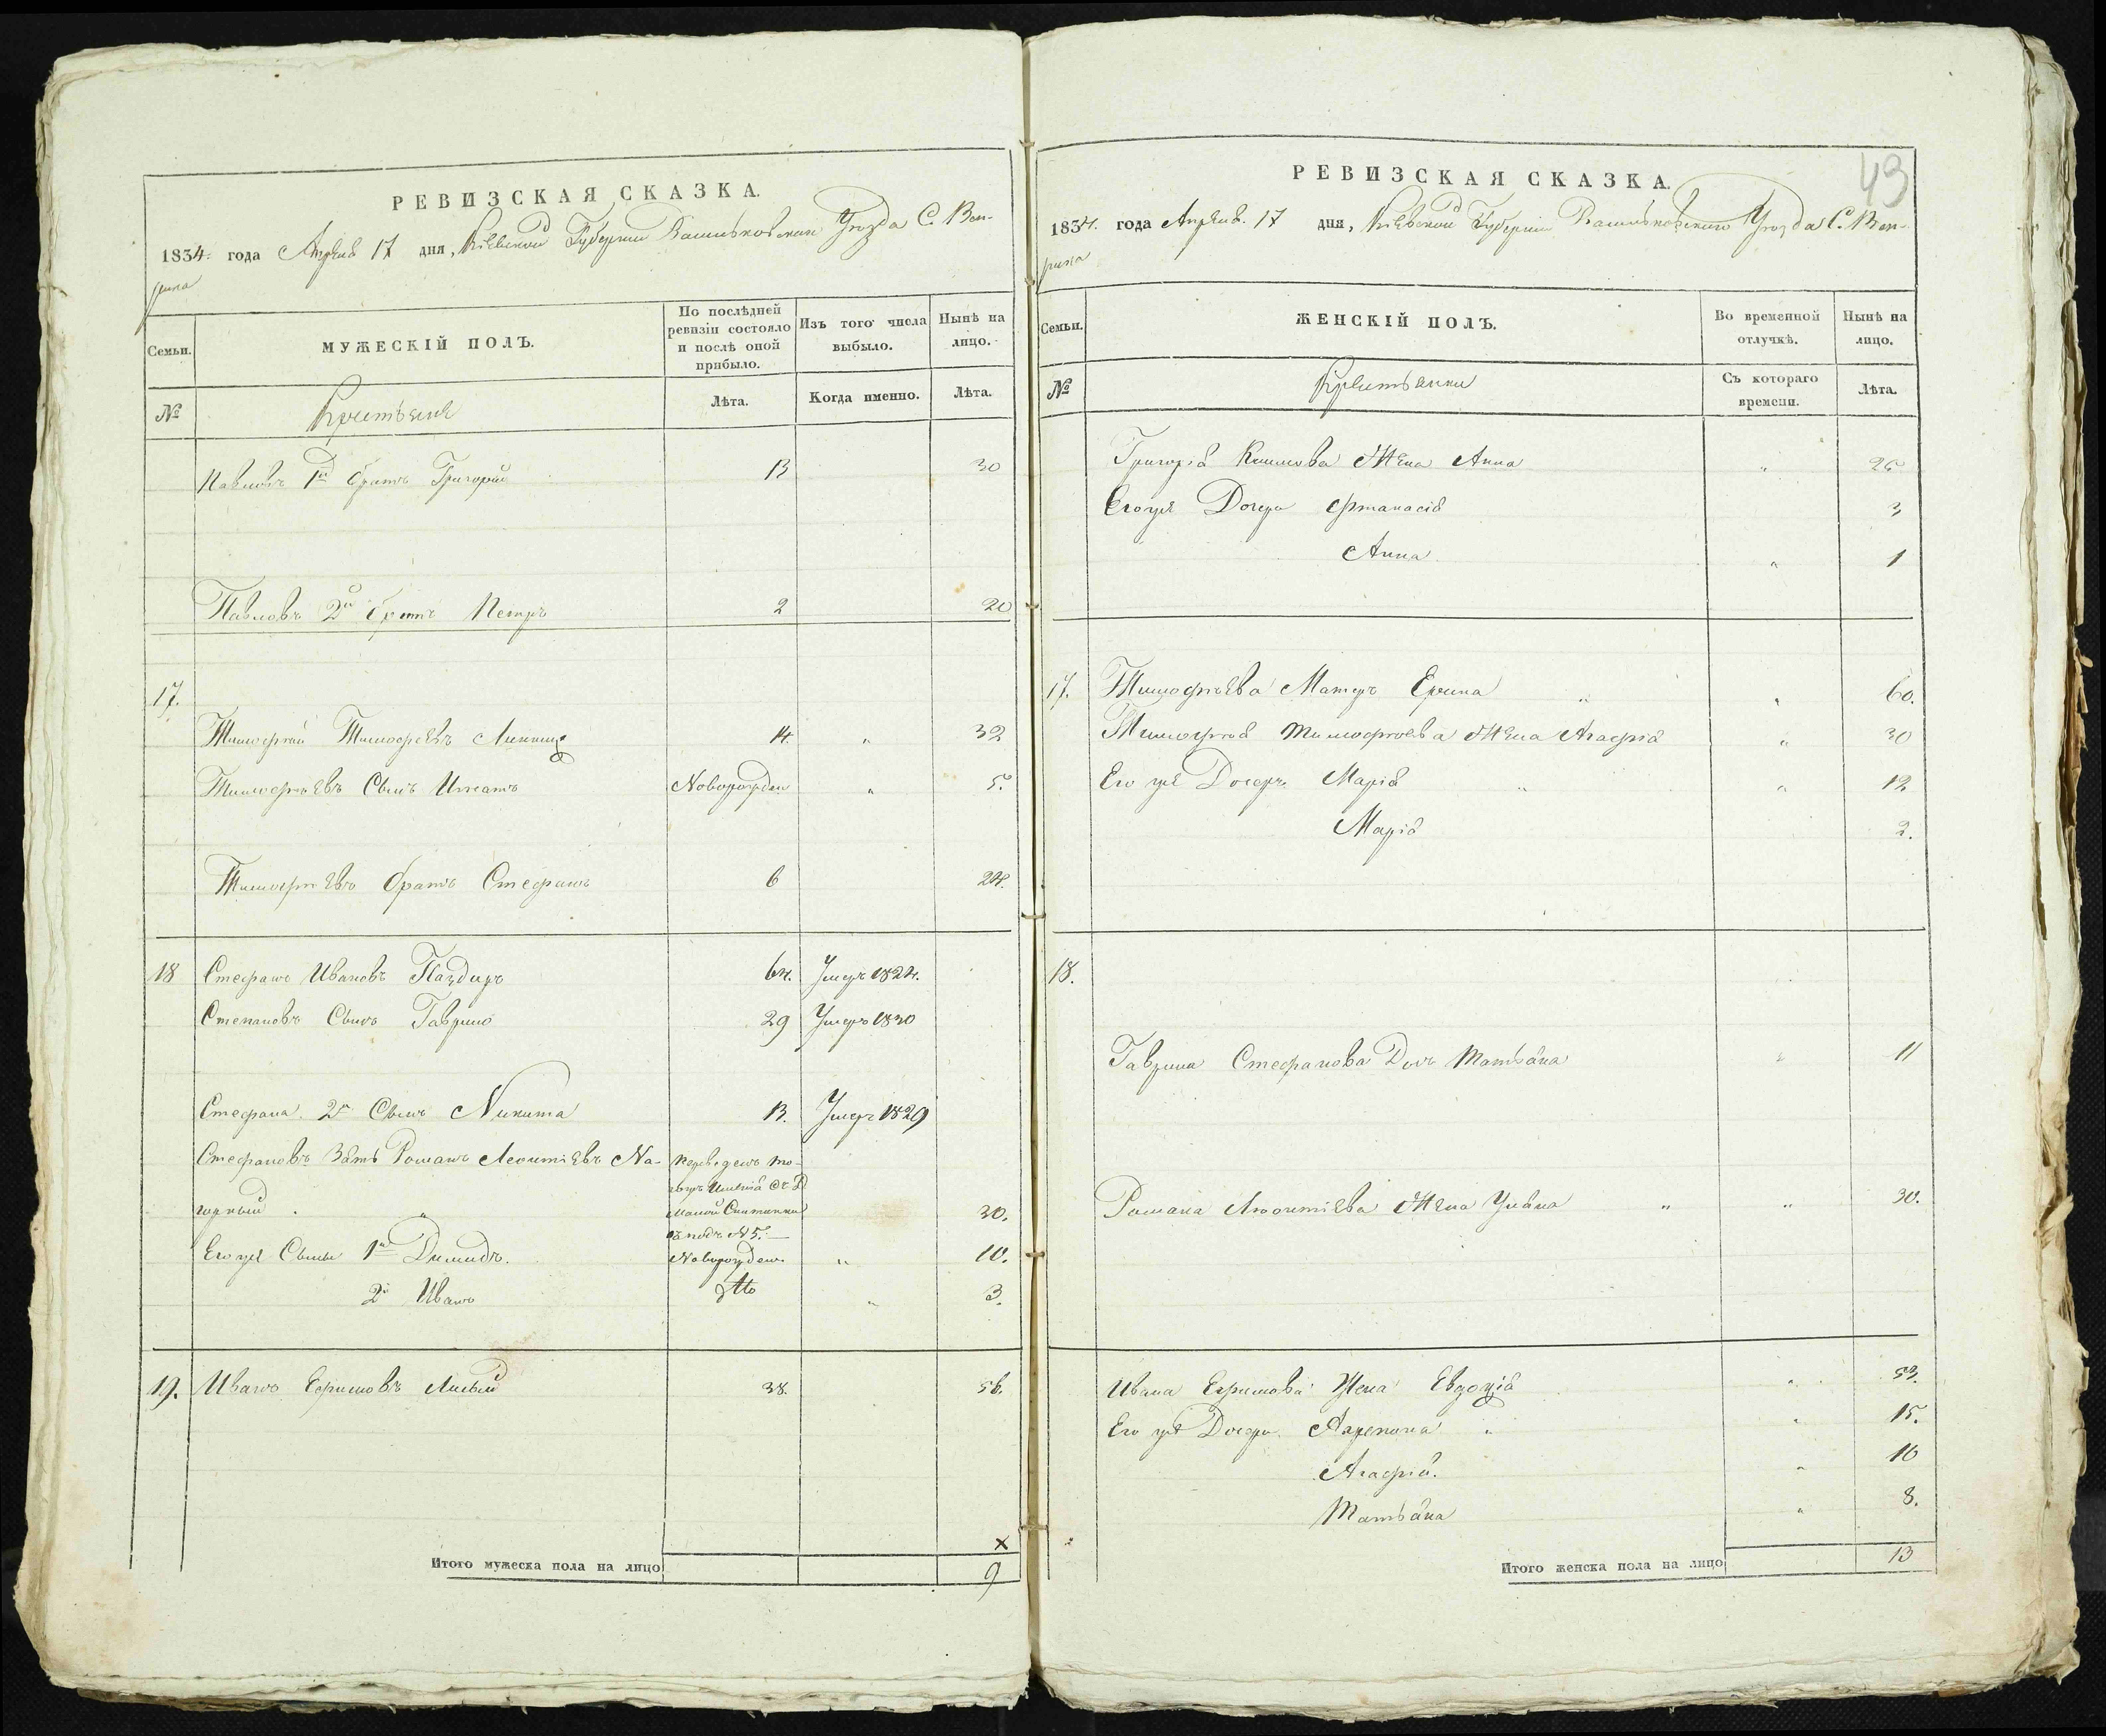 РЕВИЗСКАЯ СКАЗКА.
1834. года Апреля 17 дня, Кіевской Губерніи Васильковскаго Уезда С. Вен-
рика
Семьи.
МУЖЕСКІЙ ПОЛЪ.
По послѣдней ревизіи состояло и послѣ оной прибыло.
Изъ того числа выбыло.
Нынѣ на лицо.
№
Крестьяне
Лѣта.
Когда именно.
Лѣта.
Павловъ 1й братъ Григорій 13 30
Павловъ 2й братъ Петръ 2 20
17.
Тимофей Тимофеевъ 14. " 32
Тимофеевъ Сынъ Игнатъ Новорожден. " 5.
Тимофеевъ братъ Стефанъ 6 24.
18 Стефанъ Ивановъ Паздиръ 64. Умеръ 1824.
Степановъ Сынъ Гаврило 29 Умеръ 1830
Стефана 2й Сынъ Никита 13. Умеръ 1829
Стефановъ Зять Романъ Леонтіевъ На-
горный " 30.
переведенъ то-
гожъ Имѣнія съ Д
Малой Снитинки
изподъ № 5.
Его же Сыны 1й Демидъ. Новорожден. " 10.
2й Иванъ дтто " 3.
19. Иванъ Ефимовъ Лисый 38. 56.
×
Итого мужеска пола на лицо 9
43
РЕВИЗСКАЯ СКАЗКА.
1834. года Апреля. 17 дня, Кіевской Губерніи Васильковскаго Уезда С. Вен-
рика
Семьи.
ЖЕНСКІЙ ПОЛЪ.
Во временной отлучкѣ.
Нынѣ на лицо.
№
Крестьянки
Съ котораго времени.
Лѣта.
Григорія Климова Жена Анна " 25
Его же Дочери Афтанасія 3
Анна " 1
17. Тимофѣева Матерь Ерина " " 60.
Тимофея Тимофеева Жена Агафія " 30
Его же Дочери Марія " " 12
Марія 2.
18.
Гаврила Стефанова Доч Татьяна " 11
Романа Леонтіева Жена Уляна " " 30.
Ивана Ефимова Жена Евдокія " 53.
Его же Дочери Агрепина " " 15.
Агафія. " 10
Татьяна " 8.
Итого женска пола на лицо 13